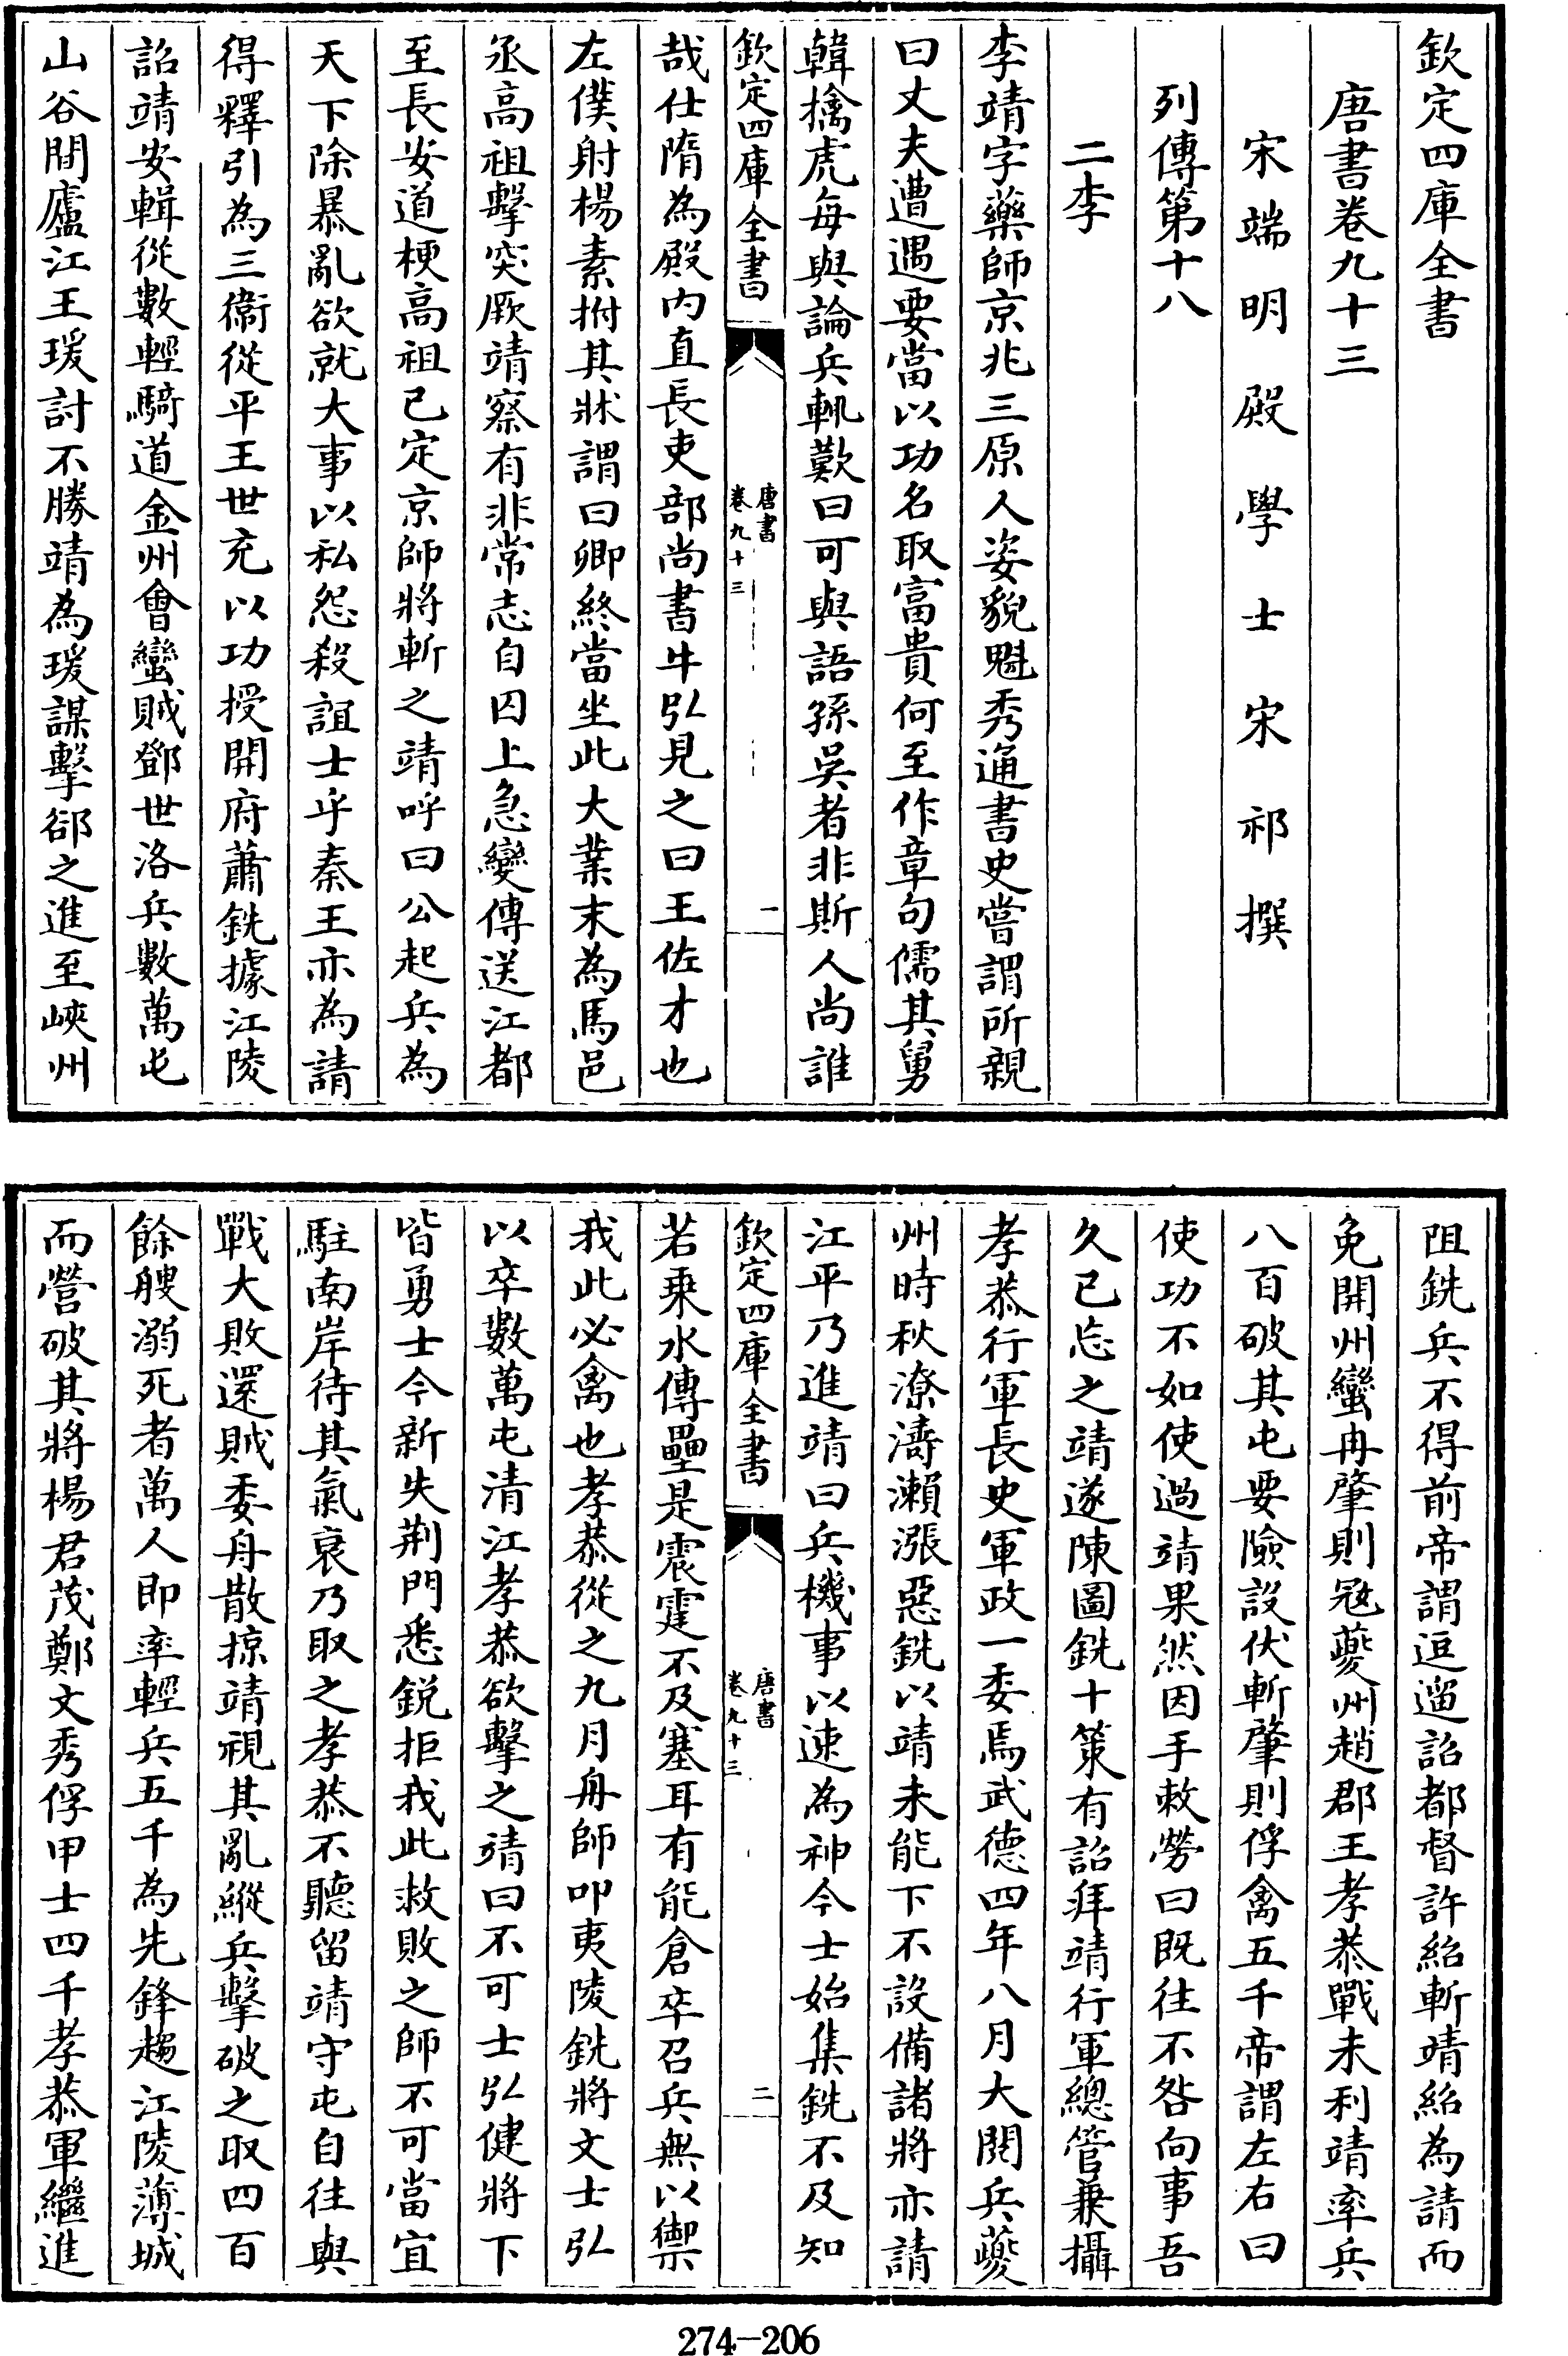 欽定四庫全書
唐書卷九十三
宋端明殿學士宋祁撰
列傳第十八
二李
李靖字藥師京兆三原人姿貌魁秀通書史嘗謂所親
曰丈夫遭遇要當以功名取富貴何至作章句儒其舅
韓擒虎每與論兵輒歎曰可與語孫吳者非斯人尚誰
欽定四庫全書
唐書
卷九十三
一
哉仕隋為殿內直長吏部尚書牛弘見之曰王佐才也
左僕射楊素拊其牀謂曰卿終當坐此大業末為馬邑
丞高祖擊突厥靖察有非常志自囚上急變傳送江都
至長安道梗高祖已定京師將斬之靖呼曰公起兵為
天下除暴亂欲就大事以私怨殺誼士乎秦王亦為請
得釋引為三衞從平王世充以功授開府蕭銑據江陵
詔靖安輯從數輕騎道金州會蠻賊鄧世洛兵數萬屯
山谷間廬江王瑗討不勝靖為瑗謀擊郤之進至峽州
阻銑兵不得前帝謂逗遛詔都督許紹斬靖紹為請而
免開州蠻冉肇則寇夔州趙郡王孝恭戰未利靖率兵
八百破其屯要險設伏斬肇則俘禽五千帝謂左右曰
使功不如使過靖果然因手敕勞曰既往不咎向事吾
久已忘之靖遂陳圖銑十策有詔拜靖行軍總管兼攝
孝恭行軍長史軍政一委焉武德四年八月大閱兵夔
州時秋潦濤瀨漲惡銑以靖未能下不設備諸將亦請
江平乃進靖曰兵機事以速為神今士始集銑不及知
欽定四庫全書
唐書
卷九十三
二
若乘水傳壘是震霆不及塞耳有能倉卒召兵無以禦
我此必禽也孝恭從之九月舟師叩夷陵銑將文士弘
以卒數萬屯清江孝恭欲擊之靖曰不可士弘健將下
皆勇士今新失荆門悉鋭拒我此救敗之師不可當宜
駐南岸待其氣衰乃取之孝恭不聽留靖守屯自往與
戰大敗還賊委舟散掠靖視其亂縱兵擊破之取四百
餘艘溺死者萬人即率輕兵五千為先鋒趨江陵薄城
而營破其將楊君茂鄭文秀俘甲士四千孝恭軍繼進
274-206